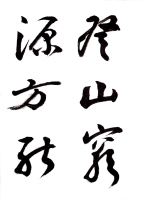 登山窮
源方能